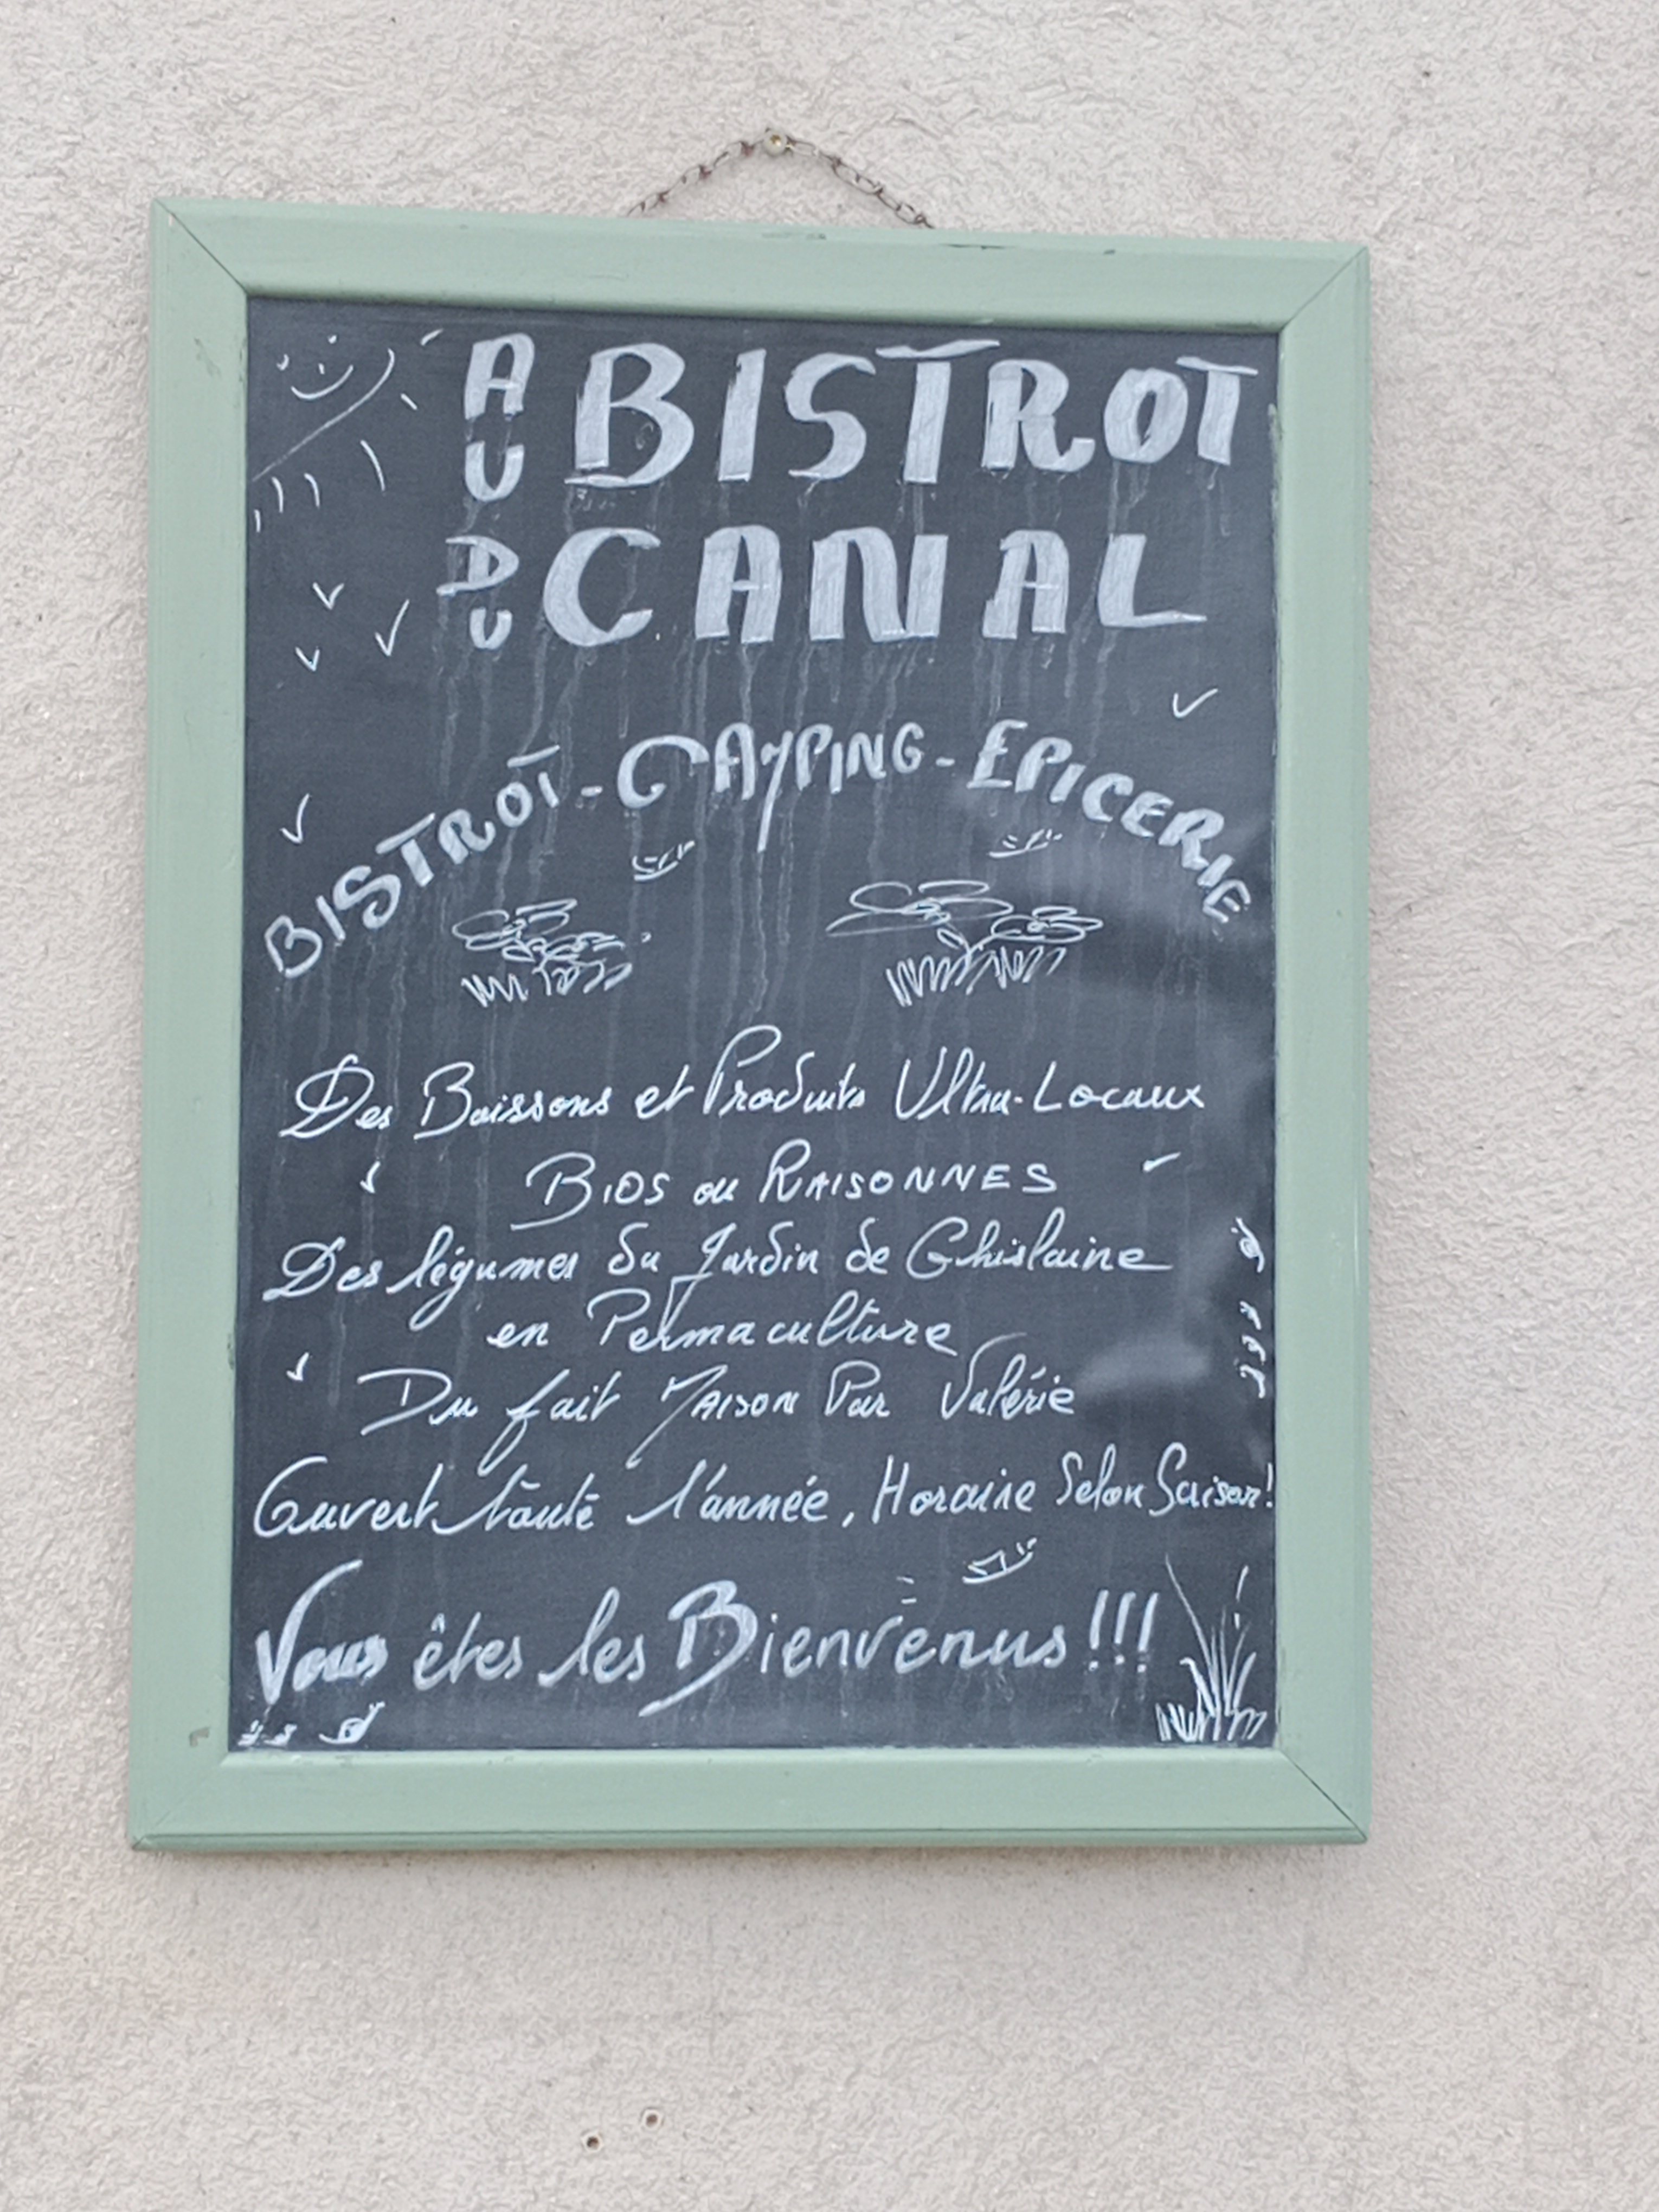 AU BISTROT
DU CANAL
BISTROT - CAMPING - EPICERIE
Des Boissons et Produits Ultra-Locaux
BIOS ou RAISONNES
Des légumes du Jardin de Ghislaine
en Permaculture
Du fait MAISON Par Valérie
Ouvert toute l'année, Horaire Selon Saison!
Vous êtes les Bienvenus!!!